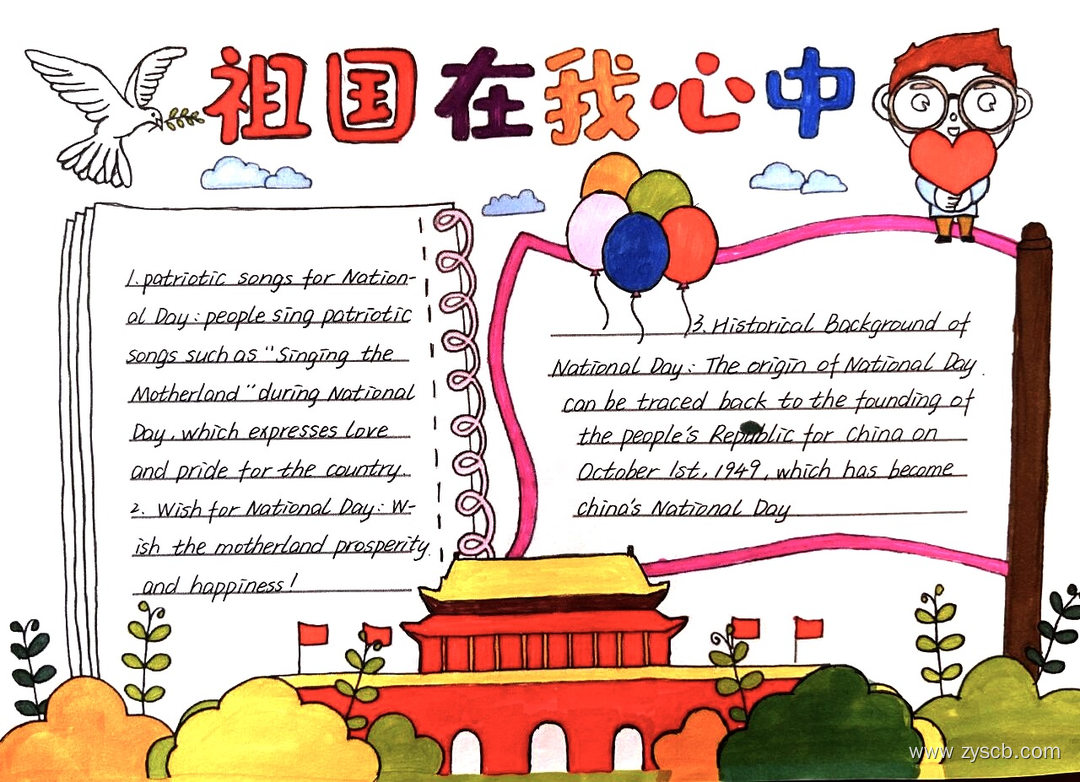 祖国在我心中
1. patriotic songs for Nation-
al Day: people sing patriotic
songs such as "Singing the
Motherland" during National
Day, which expresses love
and pride for the country.
2. Wish for National Day: W-
ish the motherland prosperity
and happiness!
3. Historical Background of
National Day: The origin of National Day
can be traced back to the founding of
the people's Republic for China on
October 1st, 1949, which has become
china's National Day
www.zyscb.com